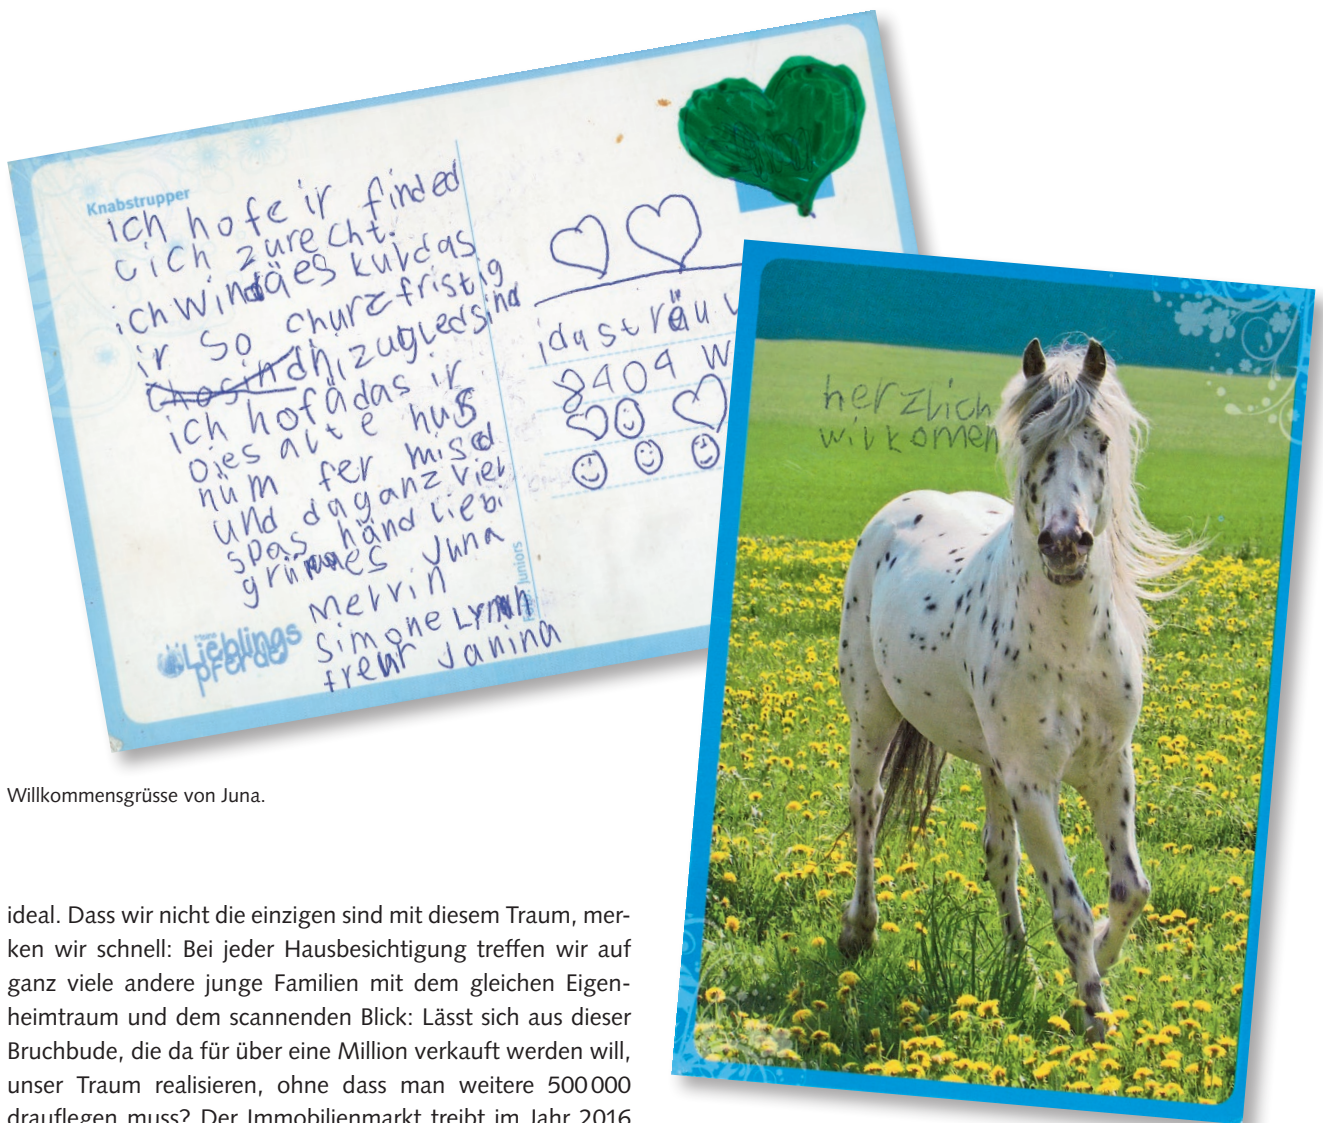 Knabstrupper
ich hofe ir finded
oich zürecht.
ich windäes kurdas
ir so churzfristig
hizugled sind
ich hofä das ir
oies alte huß
nüm fer misd
und da ganz viel
spas händ liebi
grüsses Juna
Mervin
Simone Lynn
freur Janina
Lieblings
pferde
Juniors
idasträu
8404 W
herzlich
wilkomen
Willkommensgrüsse von Juna.
ideal. Dass wir nicht die einzigen sind mit diesem Traum, mer-
ken wir schnell: Bei jeder Hausbesichtigung treffen wir auf
ganz viele andere junge Familien mit dem gleichen Eigen-
heimtraum und dem scannenden Blick: Lässt sich aus dieser
Bruchbude, die da für über eine Million verkauft werden will,
unser Traum realisieren, ohne dass man weitere 500 000
drauflegen muss? Der Immobilienmarkt treibt im Jahr 2016